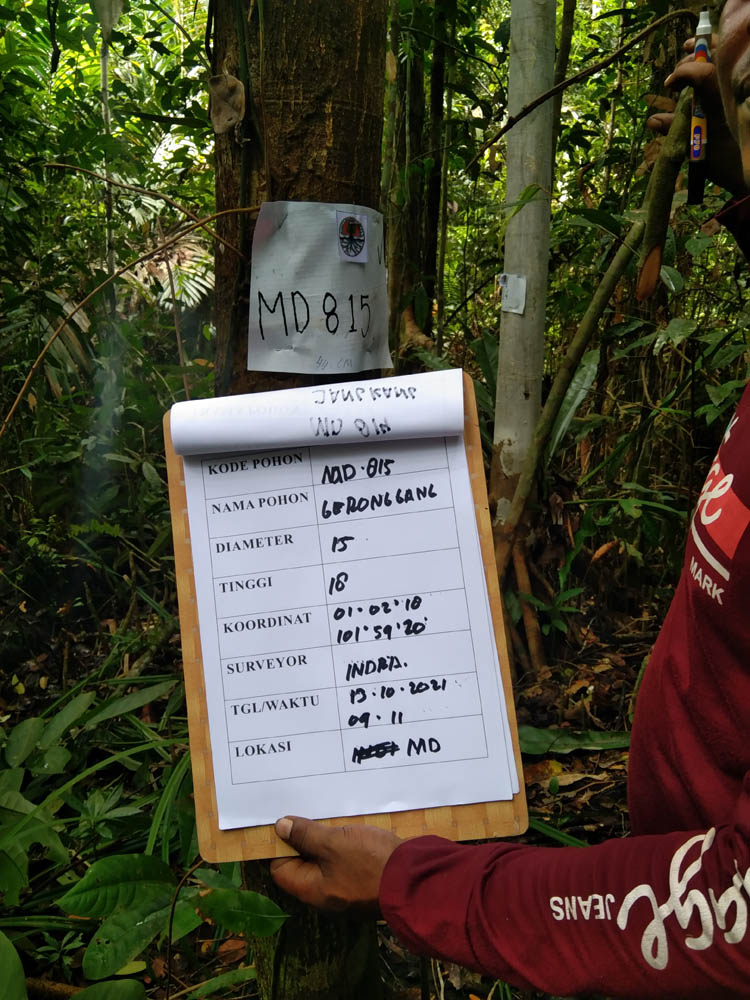 MD 815
KODE POHON MD.815
NAMA POHON GERONGGANG
DIAMETER 15
TINGGI 18
KOORDINAT 01.02'18
101'59'20'
SURVEYOR INDRA.
TGL/WAKTU 13.10.2021
09.11
LOKASI MD
MARK
JEANS